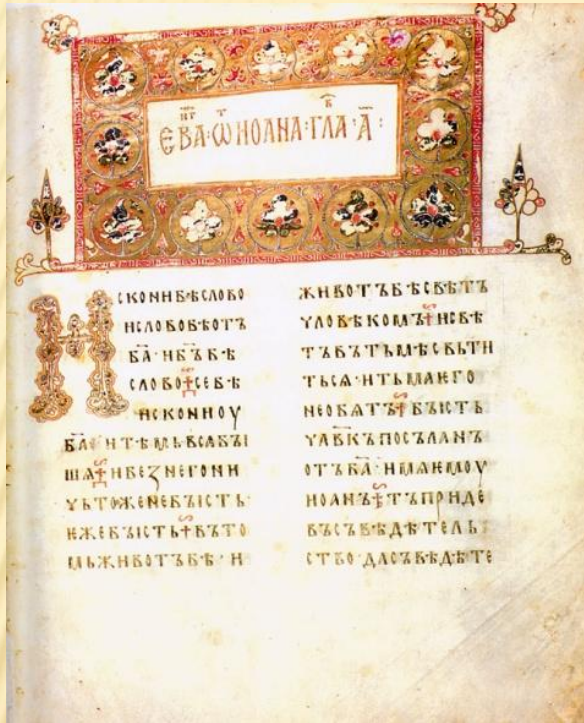 ЄВА҃Г · Ѿ ИОАНА · ГЛАВ · А҃ :
ИСКОНИБѢСЛОВО
ИСЛОВОБѢОТЪ
Б҃А · ИБ҃ЪБѢ
СЛОВО СЕБѢ
ИСКОНИОУ
Б҃А · ИТѢМЬВЬСꙖБꙐ
ШѦ ИБЕЗНЕГОНИ
ЧЬТОЖЕНЕБꙐСТЬ ·
ѤЖЕБꙐСТЬ ВЪТО
МЬЖИВОТЪБѢ · И
ЖИВОТЪБѢСВѢТЪ
ЧЛОВѢКОМЪ ИСВѢ
ТЪВЪТЬМѢСВЬТИ
ТЬСѦ · ИТЬМАѤГО
НЕОБѦТЪ БꙐСТЬ
ЧЛ҃ВКЪПОСЪЛАНЪ
ОТЪБ҃А · ИМѦѤМОУ
ИОАНЪ ТЪПРИДЕ
ВЪСЪВѢДѢТЕЛЬ
СТВО · ДАСЪВѢДѢТЕ